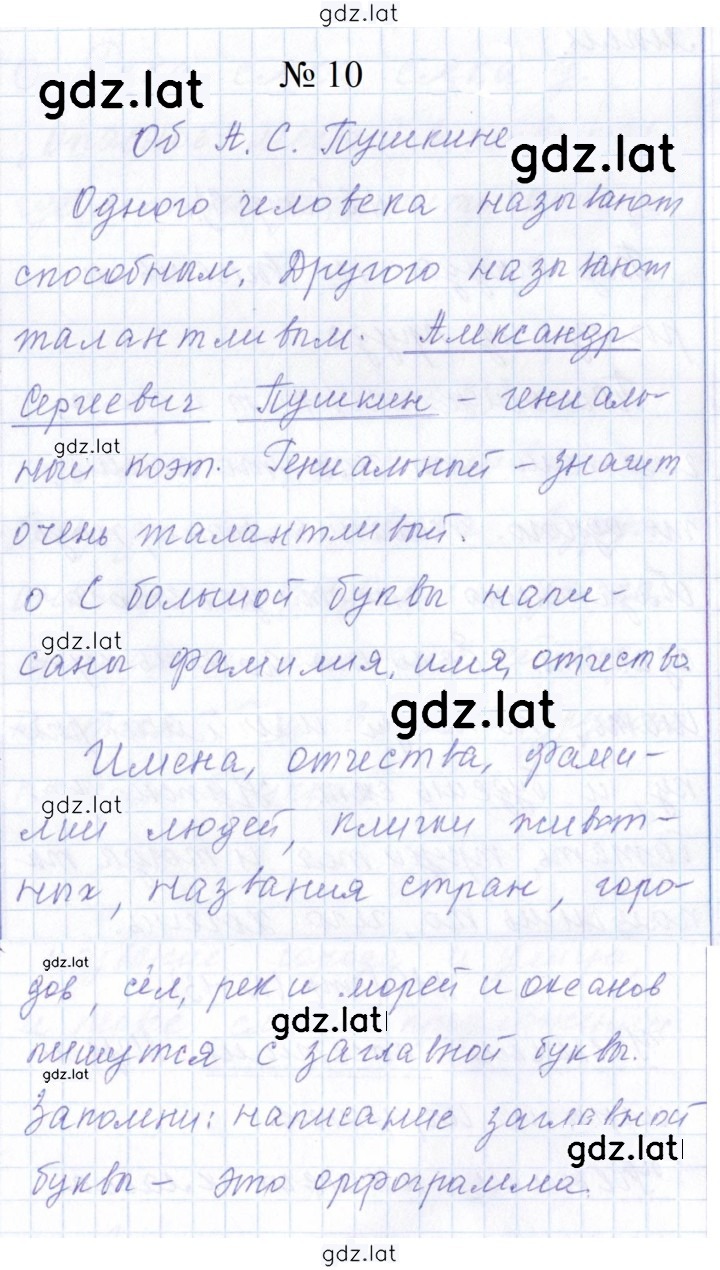 gdz.lat
№ 10
gdz.lat
Об А. С. Пушкине
gdz.lat
Одного человека называют
способным. Другого называют
талантливым. Александр
Сергеевич Пушкин – гениаль-
gdz.lat
ный поэт. Гениальный – значит
очень талантливый.
о С большой буквы напи-
gdz.lat
саны фамилия, имя, отчество
gdz.lat
Имена, отчества, фами-
gdz.lat
лии людей, клички живот-
ных, названия стран, горо-
gdz.lat
дов, сёл, рек и морей и океанов
gdz.lat
пишутся с заглавной буквы.
gdz.lat
Запомни: написание заглавной
gdz.lat
буквы – это орфограмма.
gdz.lat